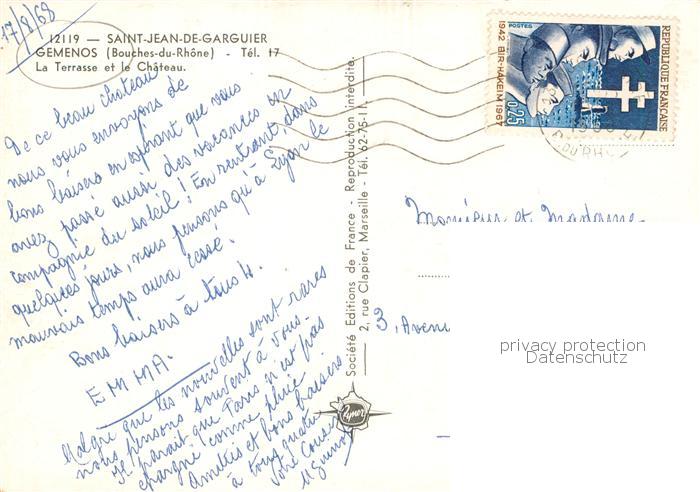 17/8/68
12119 — SAINT-JEAN-DE-GARGUIER
GEMENOS (Bouches-du-Rhône) - Tél. 17
La Terrasse et le Château.
De ce beau chateau
nous vous envoyons de
bons baisers en espérant que vous
avez passé aussi des vacances en
compagnie du soleil! En rentrant, dans
quelques jours, nous pensons qu'à Lyon le
mauvais temps aura cessé.
Bons baisers à tous 4.
EMMA.
Malgré que les nouvelles sont rares
nous pensons souvent à vous.
Il parait que Paris n'est pas
épargné comme pluie
Amitiés et bons baisers
à tous quatre
Votre
Société Editions de France - Reproduction interdite.
2, rue Clapier, Marseille - Tél. 62-75-11
POSTES
1942 BIR-HAKEIM 1967
0,25
REPUBLIQUE FRANCAISE
DU RH
Monsieur et Madame
3, Aven
privacy protection
Datenschutz